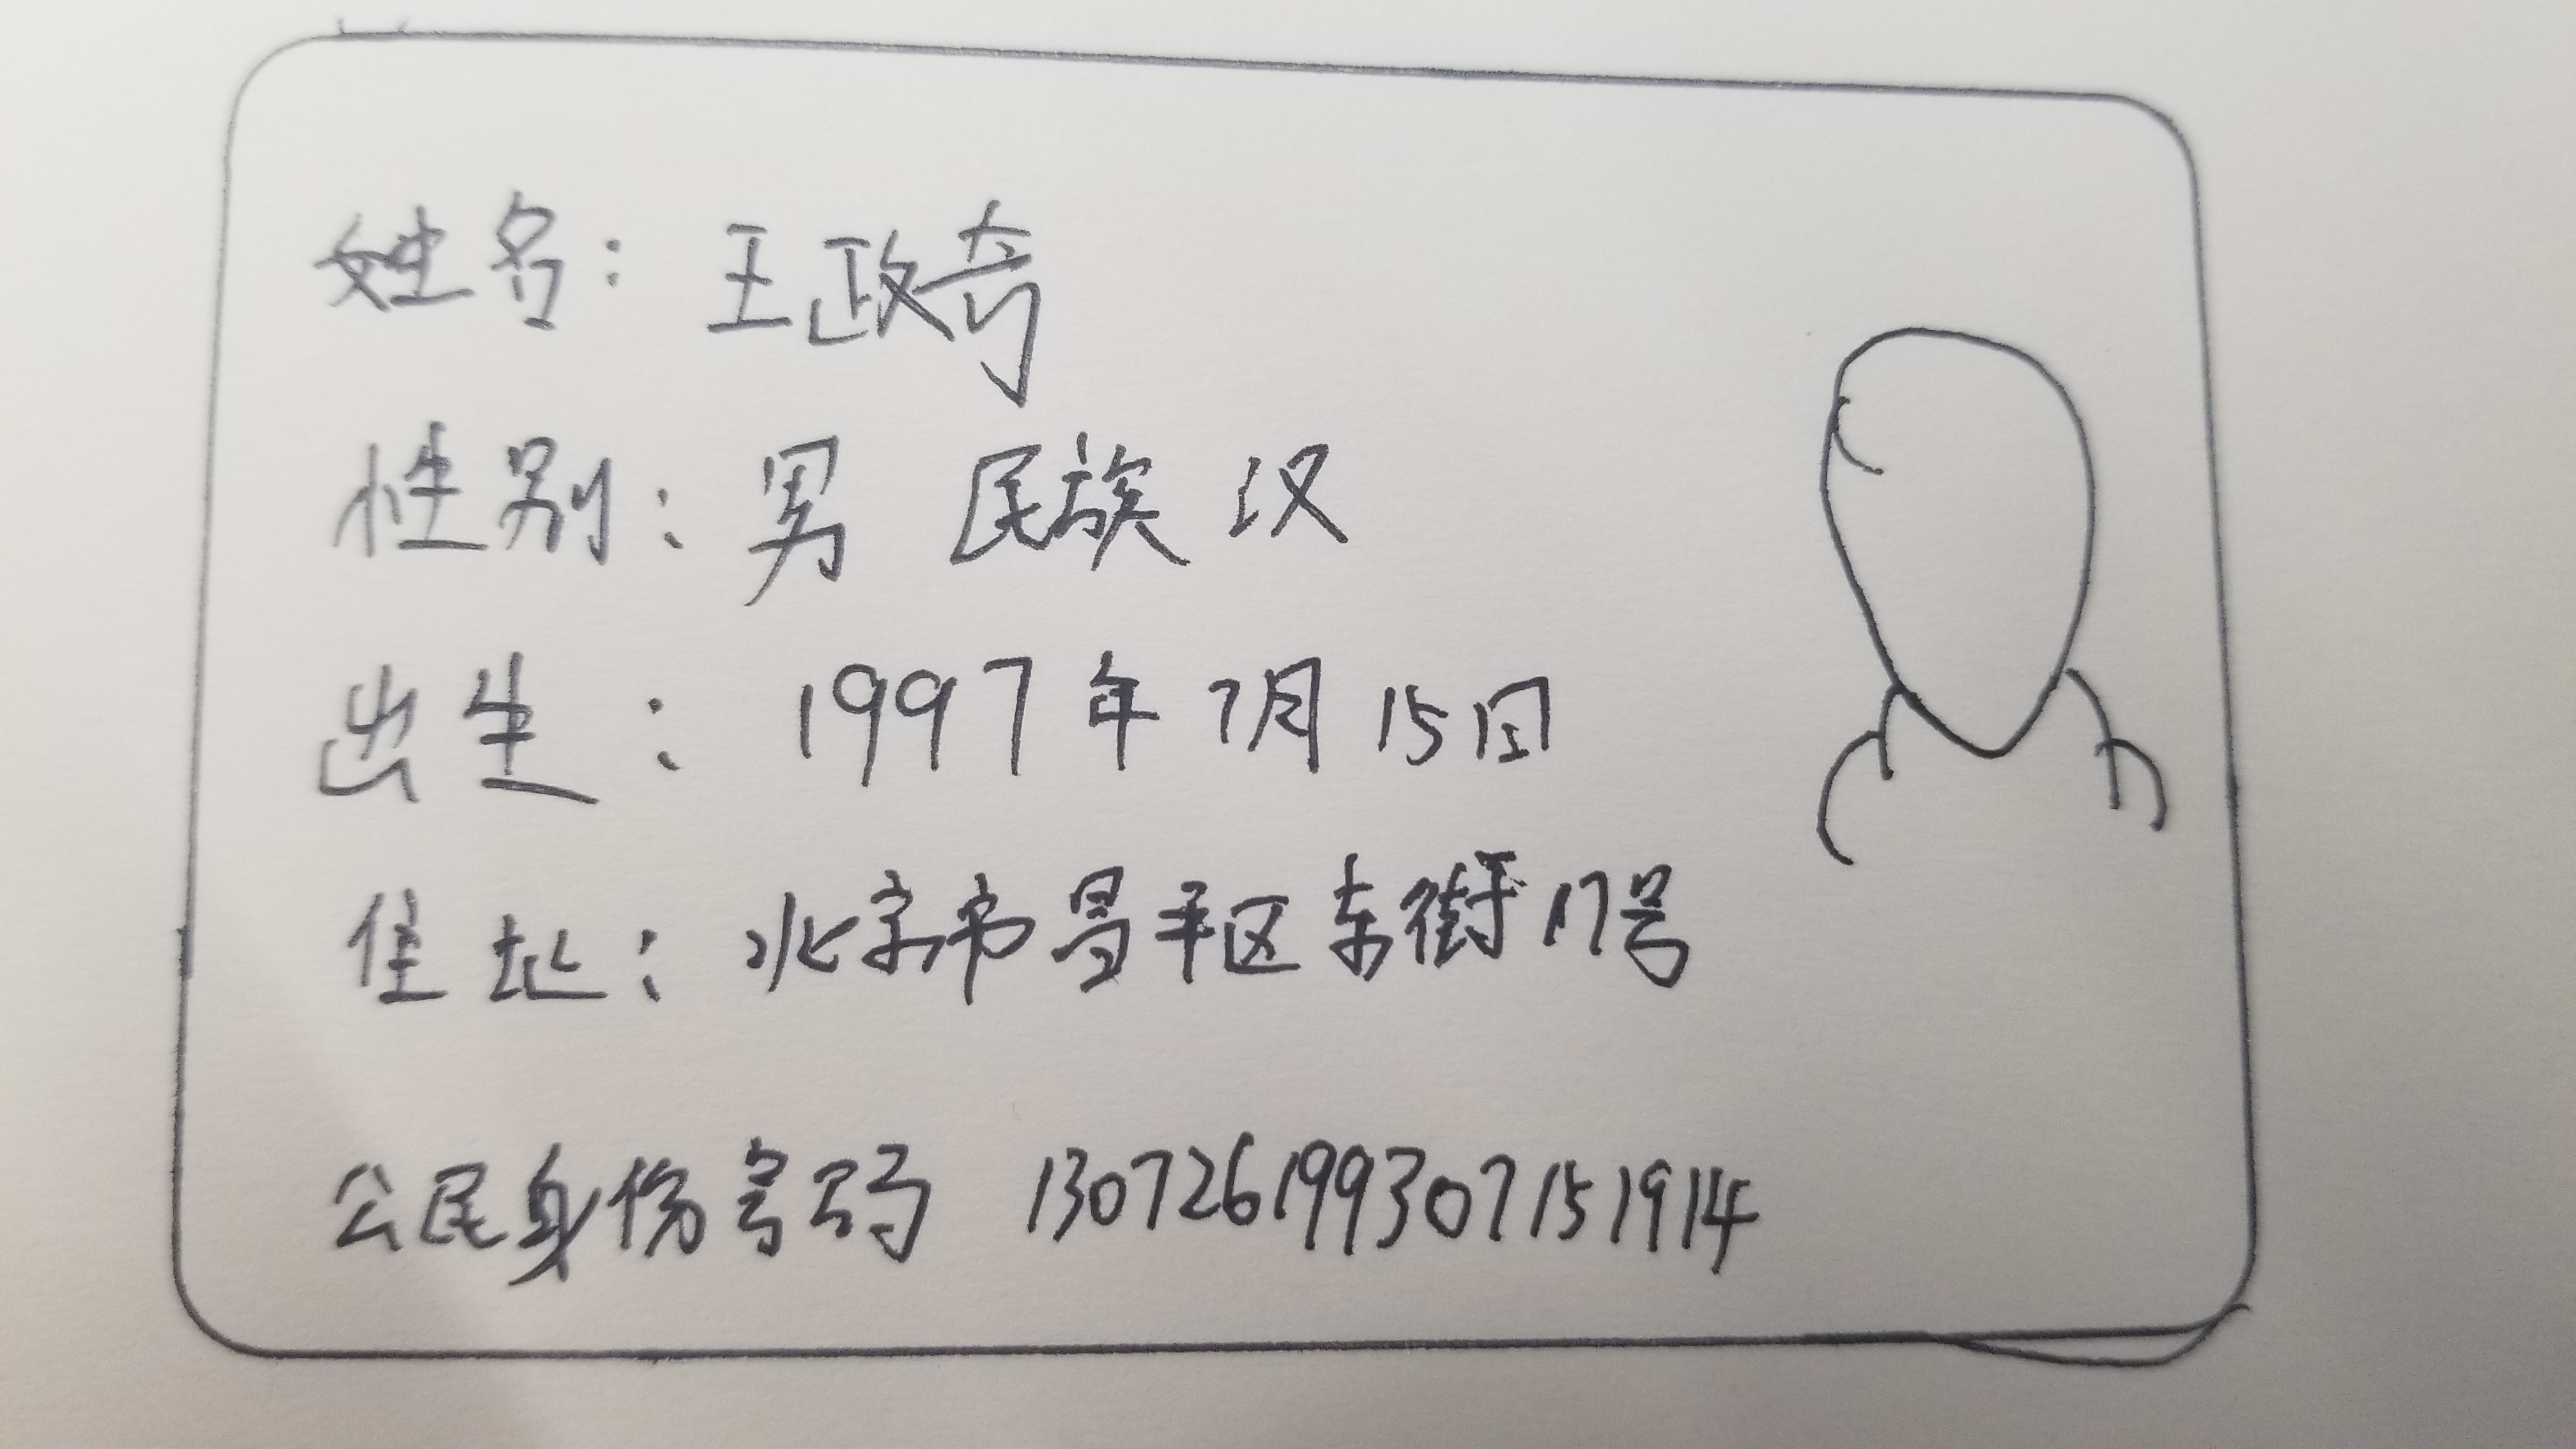 姓名：王政奇
性别：男 民族 汉
出生：1997年7月15日
住址：北京市昌平区东街17号
公民身份号码 130726199307151914